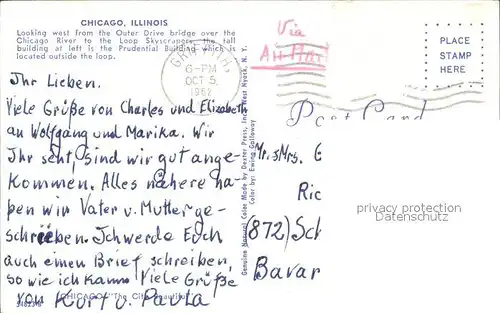 CHICAGO, ILLINOIS
Looking west from the Outer Drive bridge over the
Chicago River to the Loop Skyscrapers, the tall
building at left is the Prudential Building which is
located outside the loop.
Ihr Lieben.
Viele Grüße von Charles und Elizabeth
an Wolfgang und Marika. Wir
Ihr seht, sind wir gut ange-
kommen. Alles nähere ha-
ben wir Vater u. Mutter ge-
schrieben. Ich werde Euch
auch einen Brief schreiben,
so wie ich kann Viele Grüße
von Kurt u. Paula
CHICAGO "The City Beautiful"
Genuine Natural Color Made by Dexter Press, Inc., West Nyack, N. Y.
Color by: Ewing Galloway
6-PM
OCT 5
1962
Via
Air Mail
PLACE
STAMP
HERE
Post Card
Mr. & Mrs. G
Ric
(872) Sch
Bavar
privacy protection
Datenschutz